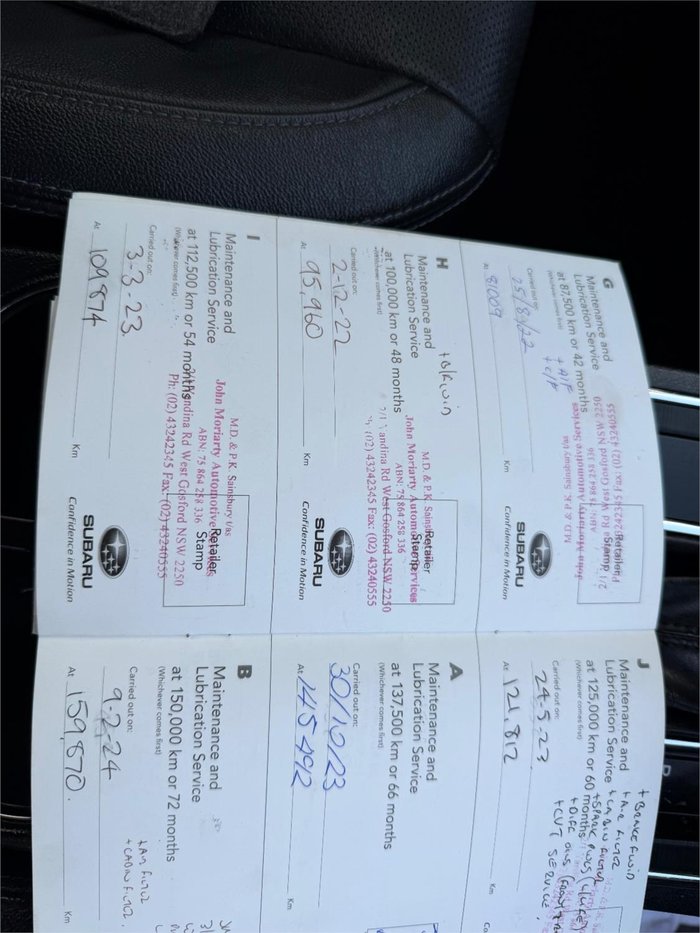 G
Maintenance and
Lubrication Service
at 87,500 km or 42 months
(Whichever comes first)
+ A/F
+ C/F
Carried out on:
25/8/22
At
81009
Km
Retailer
Stamp
M.D & P.K. Sainsbury t/as
John Moriarty Automotive Services
ABN: 75 864 258 336
SUBARU
Confidence in Motion
H
Maintenance and
Lubrication Service
at 100,000 km or 48 months
(Whichever comes first)
Carried out on:
2-12-22
At
95,960
Km
Retailer
Stamp
M.D. & P.K. Sainsbury
John Moriarty Automotive Services
ABN: 75 864 258 336
andina Rd West Gosford NSW 2250
(02) 43242345 Fax: (02) 43240555
SUBARU
Confidence in Motion
I
Maintenance and
Lubrication Service
at 112,500 km or 54 months
(Whichever comes first)
Carried out on:
3-3-23
At
109874
Km
Retailer
Stamp
M.D. & P.K. Sainsbury t/as
John Moriarty Automotive Services
ABN: 75 864 258 336
andina Rd West Gosford NSW 2250
Ph: (02) 43242345 Fax: (02) 43240555
SUBARU
Confidence in Motion
J
Maintenance and
Lubrication Service
at 125,000 km or 60 months
(Whichever comes first)
+ BRAKE FLUID
+ AIR FILTER
+ CABIN FILTER
+ SPARK PLUGS
+ DIFF OILS
+ CVT SERVICE
Carried out on:
24-5-23
At
121,812
Km
A
Maintenance and
Lubrication Service
at 137,500 km or 66 months
(Whichever comes first)
Carried out on:
30/10/23
At
145492
Km
B
Maintenance and
Lubrication Service
at 150,000 km or 72 months
(Whichever comes first)
Carried out on:
9-2-24
+ AIR FILTER
+ CABIN FILTER.
At
159,870.
Km